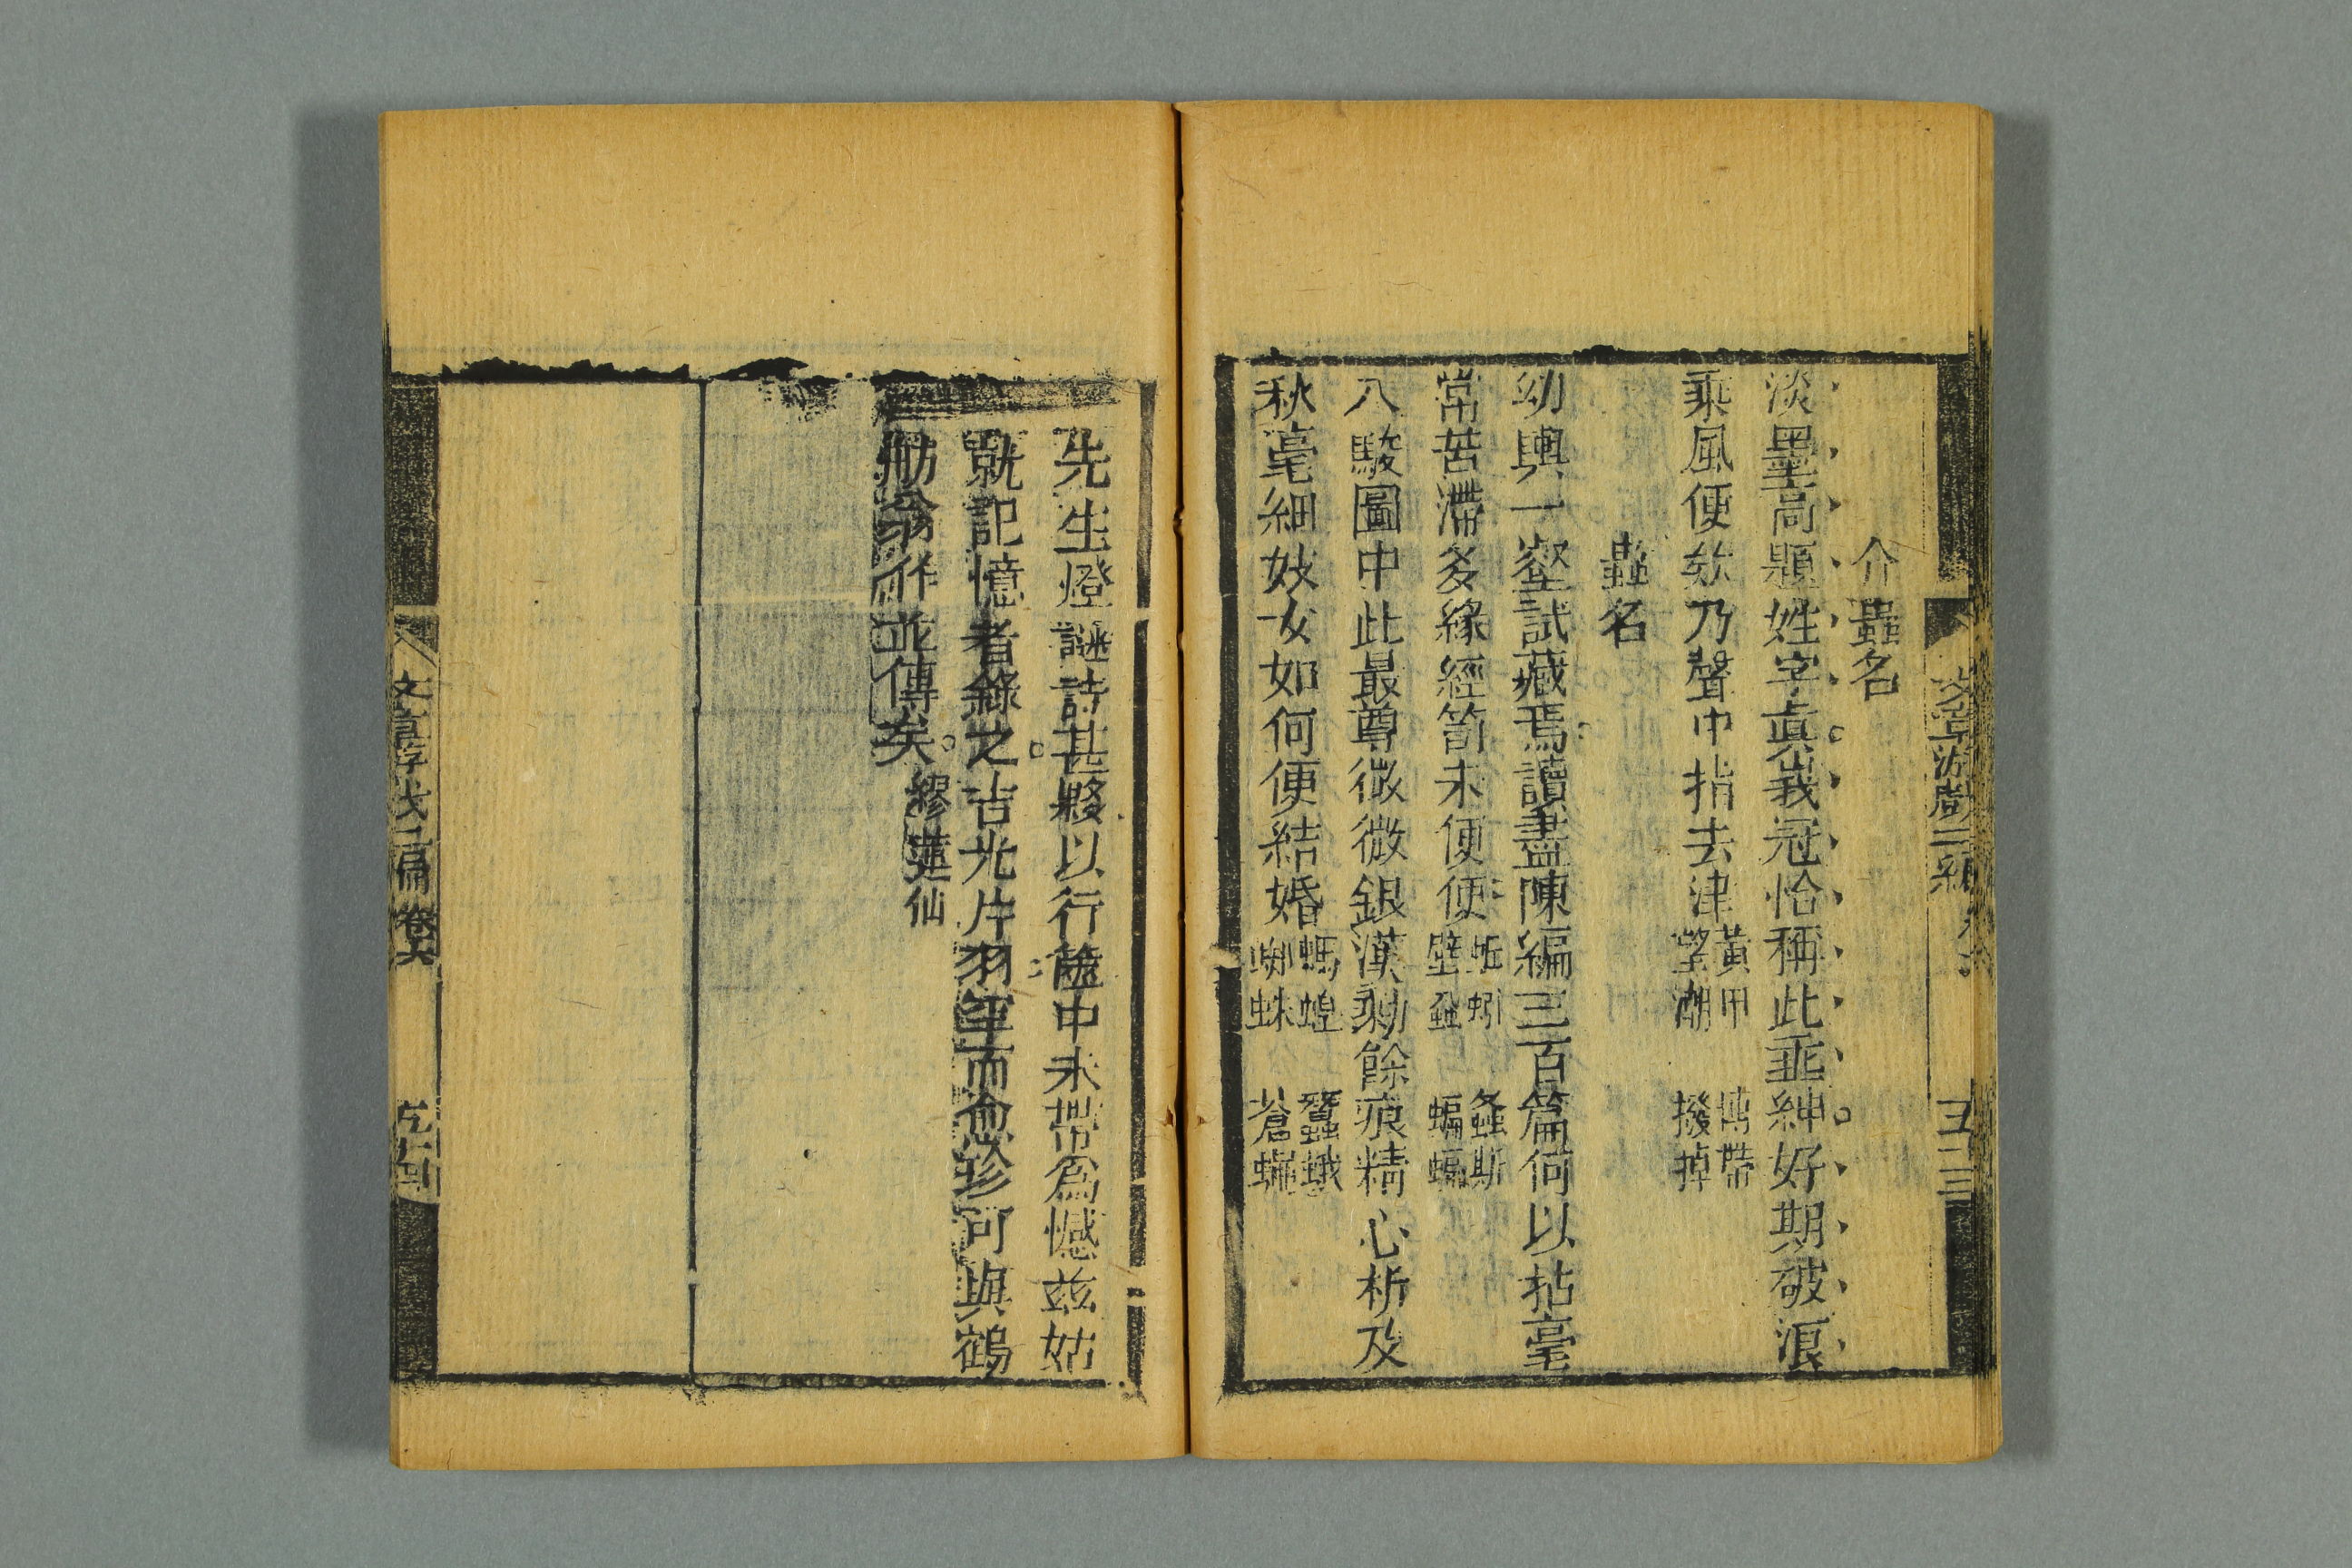 介蟲名
淡墨高題姓字眞峩冠恰稱此垂紳好期破浪
乘風便欸乃聲中指去津黃甲 望潮 博帶 撥掉
蟲名
幼輿一壑試藏焉讀盡陳編三百篇何以拈毫
常苦滯多緣經笥未便便蚯蚓 壁蝨 螽斯 蝙蝠
八駿圖中此最尊微微銀漢剩餘痕精心析及
秋毫細妓女如何便結婚螞蝗 蜘蛛 蠶蛾 蒼蠅
文章游戲二編 卷六 五十三
先生燈謎詩甚夥以行篋中未帶爲憾玆姑
就記憶者錄之吉光片羽罕而愈珍可與鶴
舫翁作並傳矣 繆蓮仙
文章游戲二編 卷六 五十四